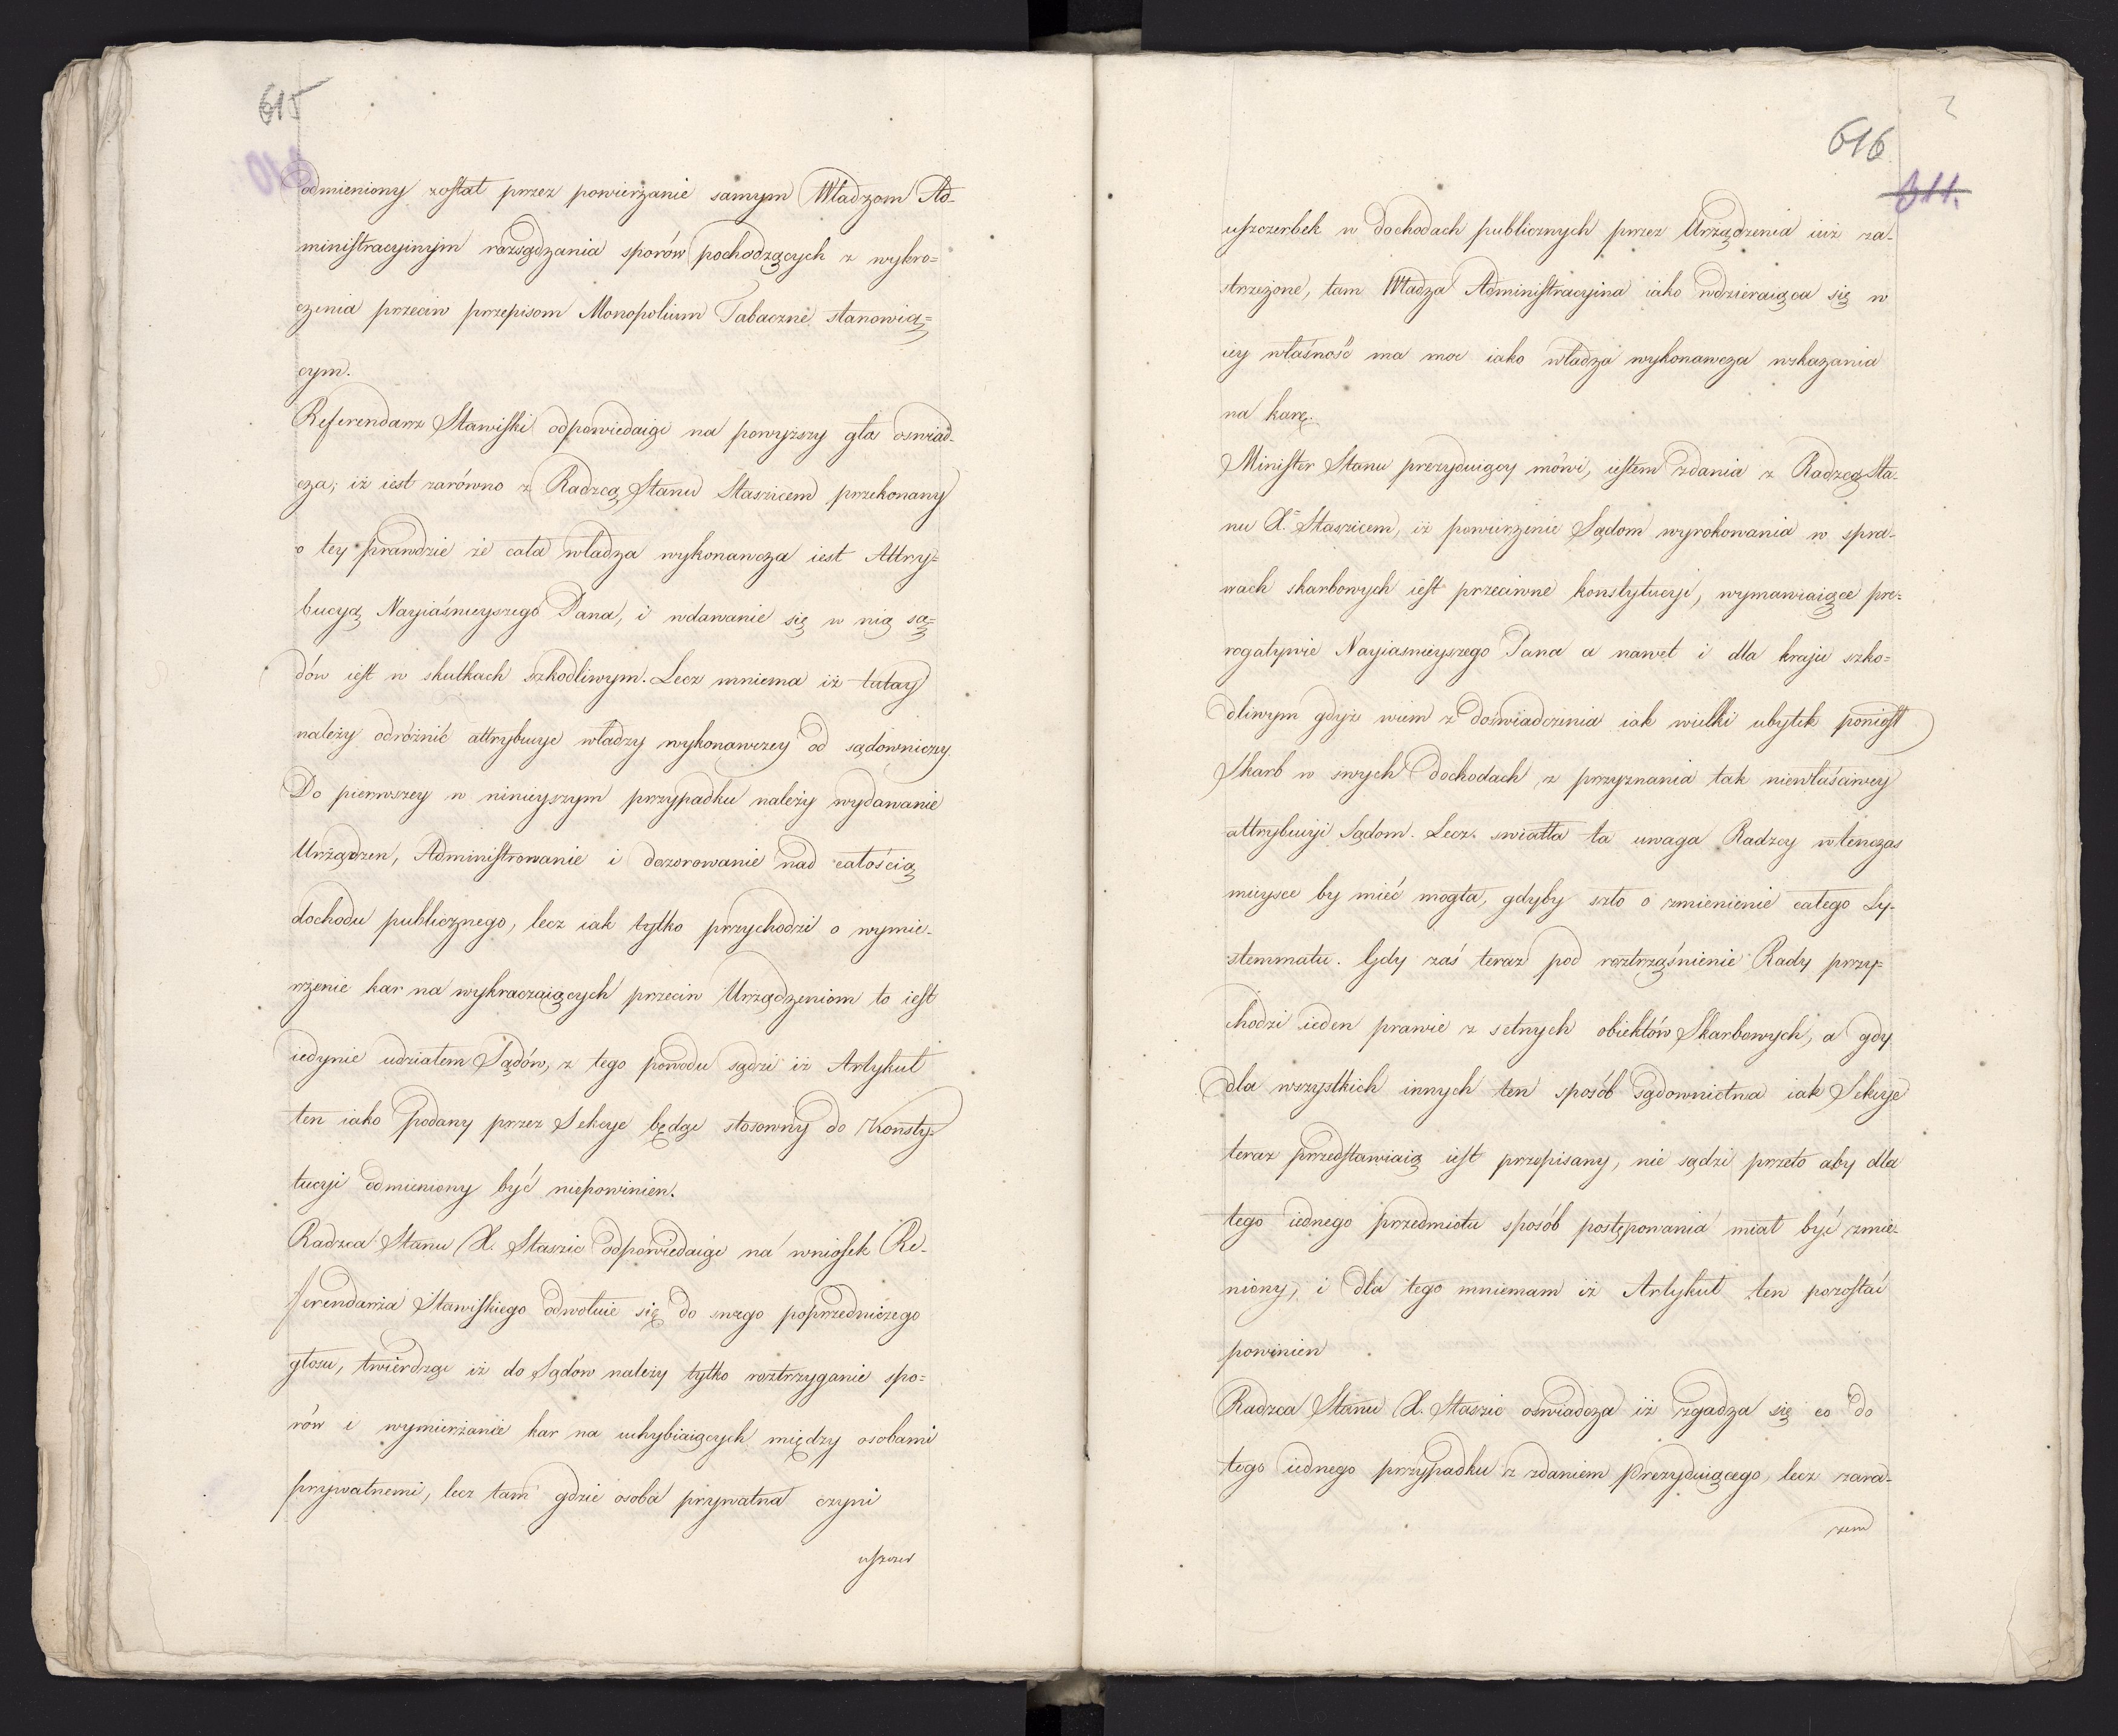 615
odmieniony został przez powierzanie samym Władzom Ad-
ministracyinym rozsądzania sporów pochodzących z wykro=
czenia przeciw przepisom Monopolium Tabaczne stanowią=
cym.
Referendarz Stawiski odpowiedaiąc na powyższy głos oswiad-
cza; iż iest zarówno z Radzcą Stanu Staszicem przekonany
o tey prawdzie że cała władza wykonawcza iest Attry=
bucyą Nayiaśnieyszego Pana, i wdawanie się w nią są=
dów iest w skutkach szkodliwym. Lecz mniema iż tutay
należy odróżnić attrybucye władzy wykonawczey od sądowniczy.
Do pierwszey w ninieyszym przypadku należy wydawanie
Urządzen, Administrowanie i dozorowanie nad całością
dochodu publicznego, lecz iak tylko przychodzi o wymie-
rzenie kar na wykraczaiących przeciw Urządzeniom to iest
iedynie udziałem Sądów, z tego powodu sądzi iż Artykuł
ten iako podany przez Sekcye będąc stosowny do Konsty-
tucyi odmieniony być niepowinien.
Radzca Stanu X. Staszic odpowiedaiąc na wniosek Re-
ferendarza Stawiskiego odwołuie się do swego poprzedniczego
głosu, twierdząc iż do Sądów należy tylko roztrzyganie spo=
rów i wymierzanie kar na uchybiaiących między osobami
prywatnemi, lecz tam gdzie osoba prywatna czyni
uszczer
616
311.
uszczerbek w dochodach publicznych przez Urządzenia iuż za-
strzeżone, tam Władza Administracyina iako wdzieraiąca się w
iey własność ma moc iako władza wykonawcza wskazania
na karę.
Minister Stanu prezyduiący mówi, iestem zdania z Radzcą Sta-
nu X. Staszicem, iż powierzenie Sądom wyrokowania w spra-
wach skarbowych iest przeciwne konstytucyi, wymawiaiące pre-
rogatywie Nayiasnieyszego Pana a nawet i dla kraju szko=
dliwym gdyż wiem z doświadczenia iak wielki ubytek poniosł
Skarb w swych dochodach z przyznania tak niewłaściwey
attrybucyi Sądom. Lecz swiatła ta uwaga Radzcy wtenczas
mieysce by mieć mogła, gdyby szło o zmienienie całego Sy-
stemmatu. Gdy zaś teraz pod roztrząśnienie Rady przy=
chodzi ieden prawie z setnych obiektów Skarbowych, a gdy
dla wszystkich innych ten sposób sądownictwa iak Sekcye
teraz przedstawiaią iest przepisany, nie sądzi przeto aby dla
tego iednego przedmiotu sposób postępowania miał być zmie-
niony, i dla tego mniemam iż Artykuł ten pozostać
powinien
Radzca Stanu X. Staszic oswiadcza iż zgadza się co do
tego iednego przypadku z zdaniem Prezyduiącego, lecz zara-
zem